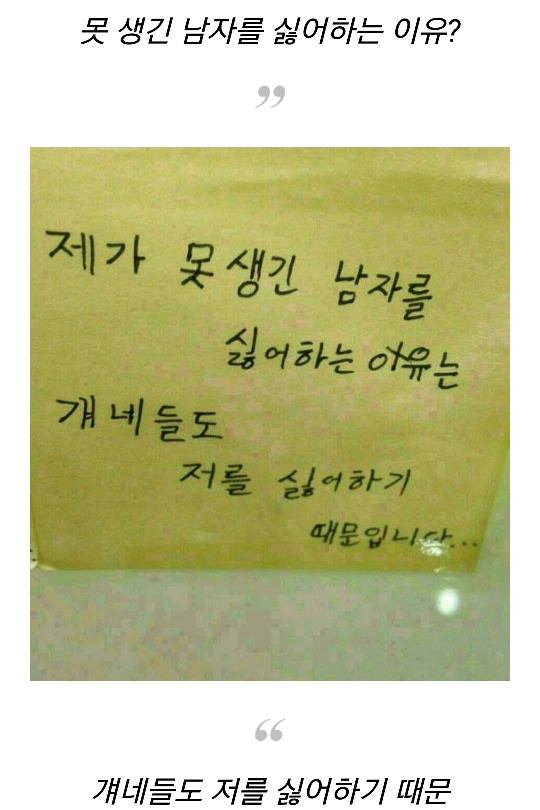 못 생긴 남자를 싫어하는 이유?
”
제가 못생긴 남자를
싫어하는 이유는
걔네들도
저를 싫어하기
때문입니다...
“
걔네들도 저를 싫어하기 때문